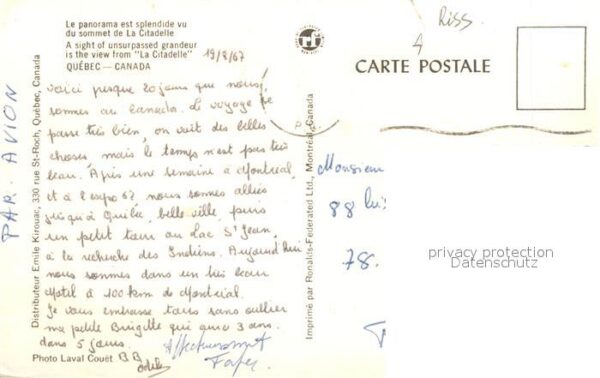 Le panorama est splendide vu
du sommet de La Citadelle
A sight of unsurpassed grandeur
is the view from "La Citadelle"
QUÉBEC — CANADA
19/8/67
Riss.
4
CARTE POSTALE
PAR AVION
Distributeur Emile Kirouac, 330 rue St-Roch, Québec, Canada
voici presque 20 jours que nous
sommes au Canada. Le voyage se
passe très bien, on voit des belles
choses, mais le temps n'est pas très
beau. Après une semaine à Montréal
et à l'expo 67 nous sommes allés
jusqu'à Québec, belle ville, puis
un petit tour au Lac St Jean,
à la recherche des Indiens. Aujourd'hui
nous sommes dans un très beau
Motel à 100 km de Montréal.
Je vous embrasse tous sans oublier
ma petite Brigitte qui aura 3 ans
dans 5 jours.
Affectueusement
Photo Laval Couët
Imprimé par Ronalds-Federated Ltd., Montréal, Canada
Monsieur
88
78.
privacy protection
Datenschutz